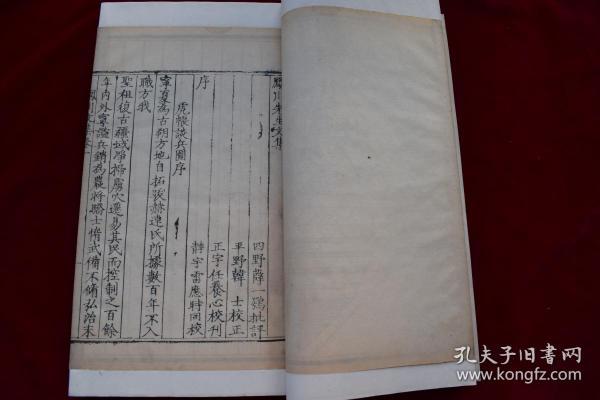 先生文集
四野薛一鶚批評
平野韓 士校正
正宇任養心校刊
薛宇雷應時同校
序
虎帳談兵圖序
寧夏爲古朔方地自拓跋赫連氏所據數百年不入
職方我
聖祖復古疆域淨掃虜穴還易其民而控制之百餘
年內外寧謐兵銷爲農將驕士惰武備不脩弘治末
孔夫子旧书网
www.kongfz.com